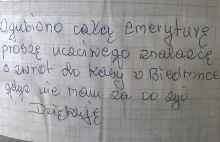 Zgubiono całą emeryturę
proszę uczciwego znalazcę
o zwrot do kasy w Biedronce
gdyż nie mam za co żyć
Dziękuję